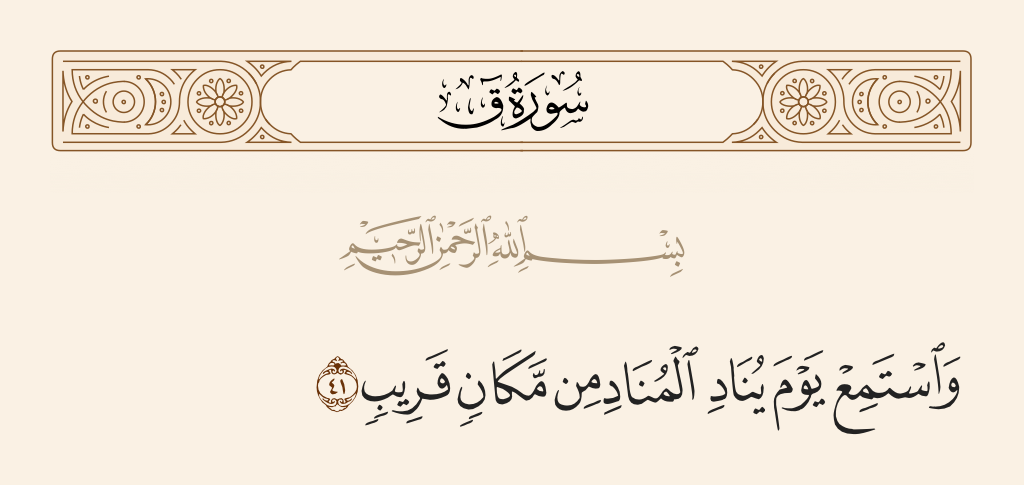 سُورَةُ قٓ
بِسْمِ ٱللَّهِ ٱلرَّحْمَٰنِ ٱلرَّحِيمِ
وَٱسْتَمِعْ يَوْمَ يُنَادِ ٱلْمُنَادِ مِن مَّكَانٍ قَرِيبٍ ٤١